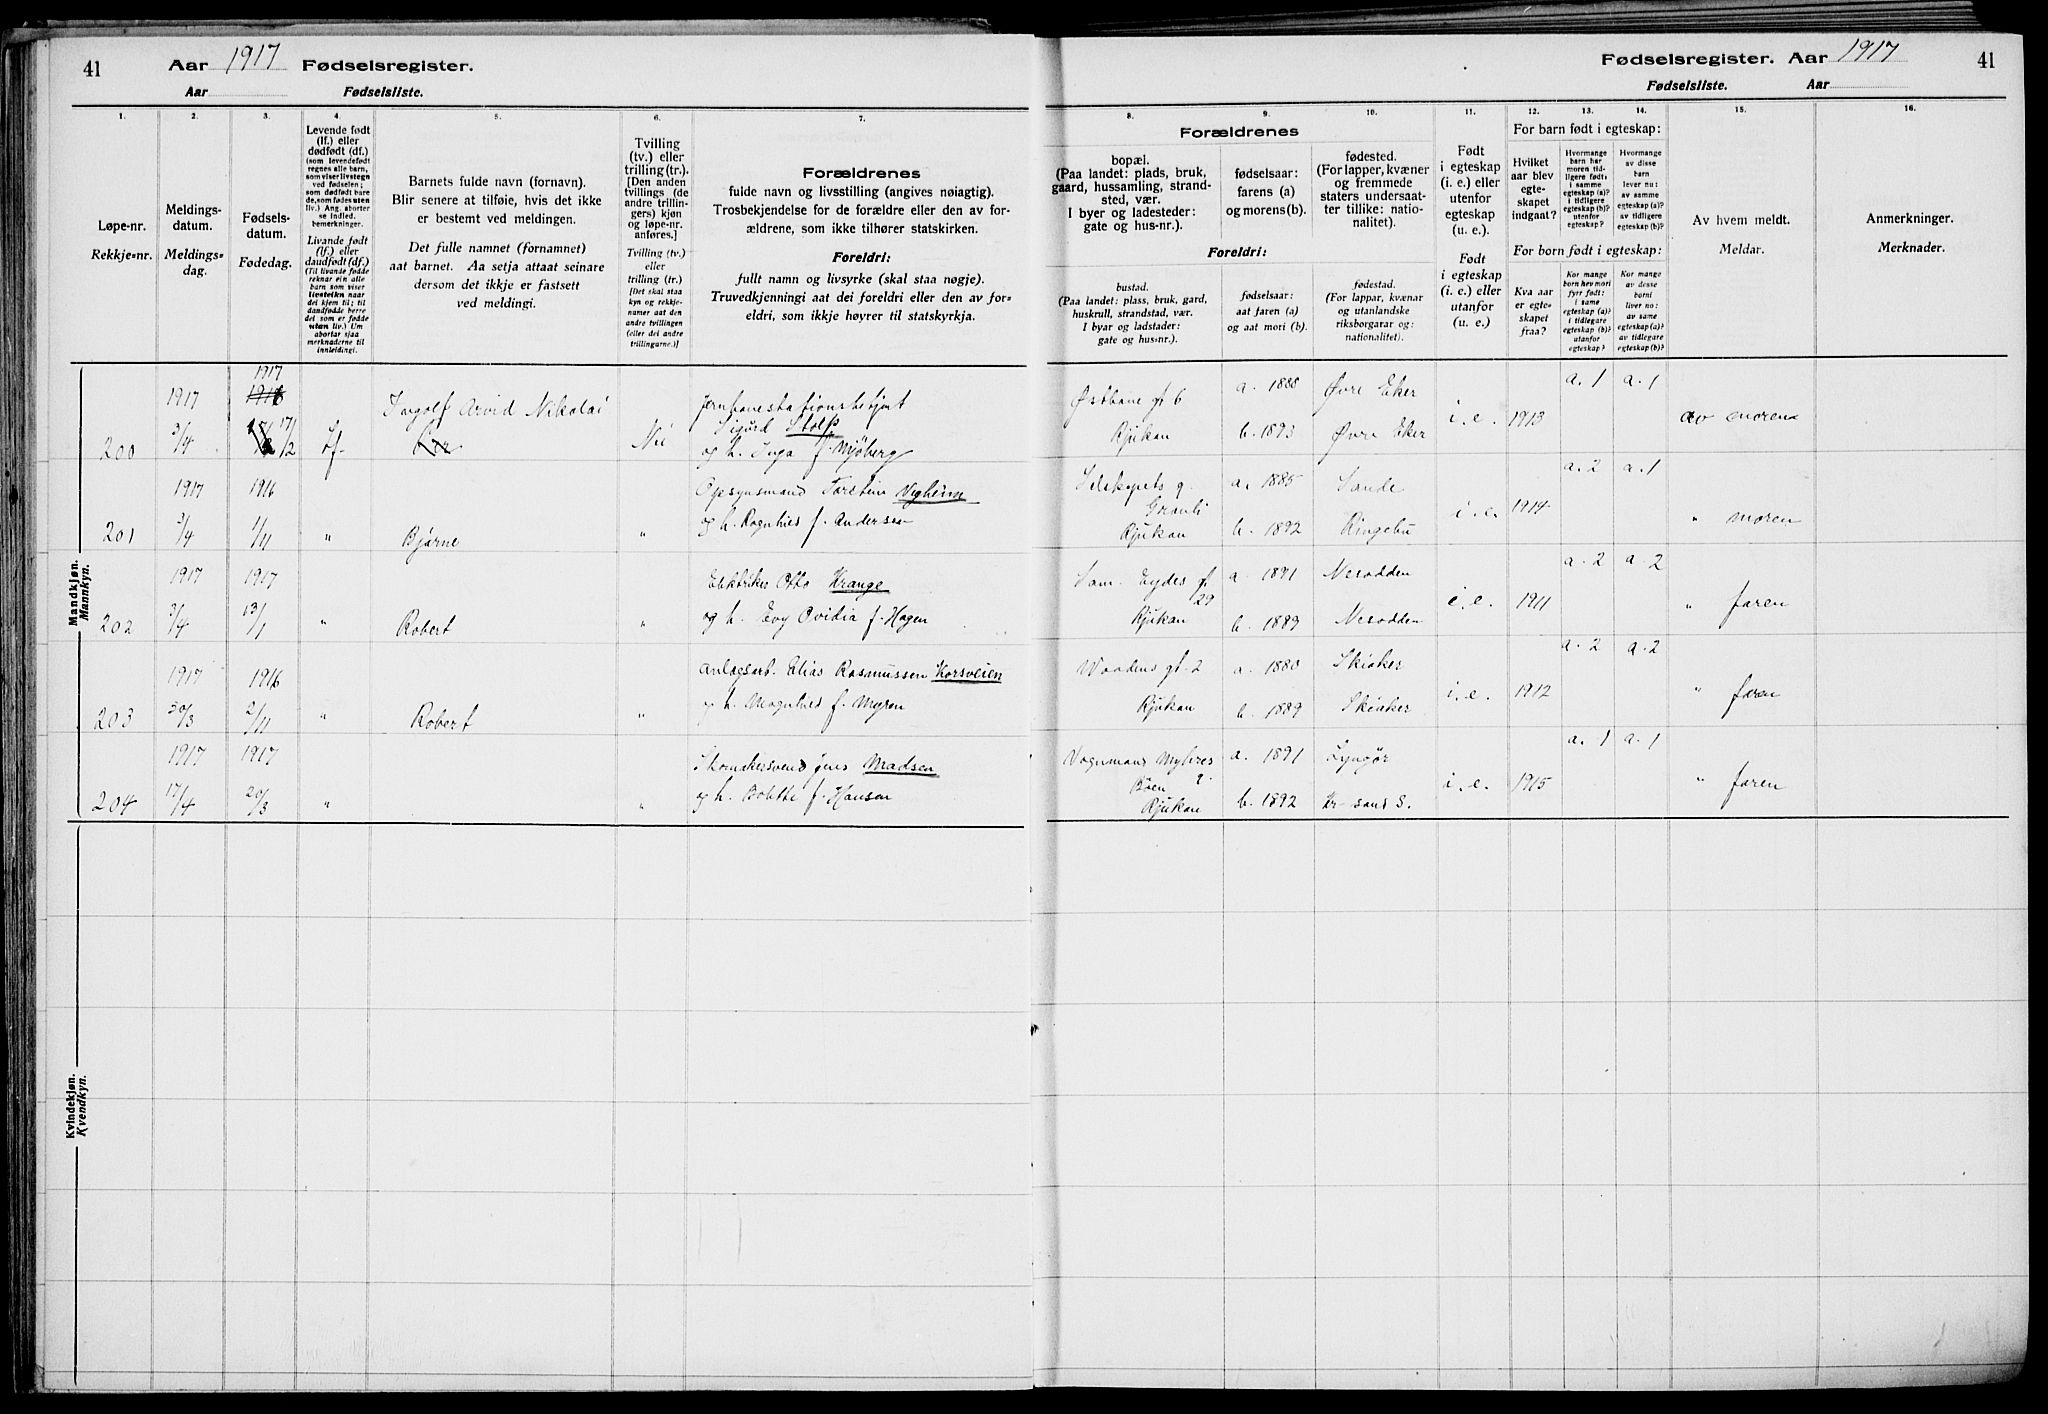 41
Aar 1917 Fødselsregister.
Aar Fødselsliste.
1. 2. 3. 4. 5. 6. 7.
Løpe-nr.
Rekkje-nr.
Meldings-
datum.
Meldings-
dag.
Fødsels-
datum.
Fødedag.
Levende født
(lf.) eller
dødfødt (df.)
(som levendefødt
regnes alle barn,
som viser livstegn
ved fødselen;
som dødfødt bare
de, som fødes uten
liv.) Ang. aborter
se indled.
bemerkninger.
Livande født
(lf.) eller
daudfødt (df.)
(Til livande fødde
reknar ein alle
barn som viser
livsteikn naar
dei kjem til; til
daudfødde berre
dei som er fødde
utan liv.) Um
abortar sjaa
merknaderne til
innleidingi.
Barnets fulde navn (fornavn).
Blir senere at tilføie, hvis det ikke
er bestemt ved meldingen.
Det fulle namnet (fornamnet)
aat barnet. Aa setja attaat seinare
dersom det ikkje er fastsett
ved meldingi.
Tvilling
(tv.) eller
trilling (tr.).
[Den anden
tvillings (de
andre trillin-
gers) kjøn
og løpe-nr.
anføres.]
Tvilling (tv.)
eller
trilling (tr.)
[Det skal staa
kyn og rekkje-
numer aat den
andre tvillingen
(eller dei andre
trillingarne.)]
Forældrenes
fulde navn og livsstilling (angives nøiagtig).
Trosbekjendelse for de forældre eller den av for-
ældrene, som ikke tilhører statskirken.
Foreldri:
fullt namn og livsyrke (skal staa nøgje).
Truvedkjenningi aat dei foreldri eller den av for-
eldri, som ikkje høyrer til statskyrkja.
Mandkjøn.
Mannkyn.
200 1917 3/4 1917 17/2 lf. Ingolf Arvid Nikolai Nei Jernbanestationsbetjent
Sigurd Stolp
og h. Inga f. Mjøberg
201 1917 3/4 1916 1/11 " Bjarne " Opsynsmand Torstein Vigheim
og h. Ragnhild f. Andersen
202 1917 3/4 1917 13/1 " Robert " Elektriker Otto Krange
og h. Evy Ovidia f. Hagen
203 1917 30/3 1916 2/11 " Robert " Anlægsarb. Elias Rasmussen Korsveien
og h. Magnhild f. Myron
204 1917 17/4 1917 20/3 " " Skomakersvend Jens Madsen
og h. Bolette f. Hansen
Kvindekjøn.
Kvendkyn.
Fødselsregister. Aar 1917
41
Fødselsliste. Aar
8. 9. 10. 11. 12. 13. 14. 15. 16.
Forældrenes
bopæl.
(Paa landet: plads, bruk,
gaard, hussamling, strand-
sted, vær.
I byer og ladesteder:
gate og hus-nr.).
fødselsaar:
farens (a)
og morens (b).
fødested.
(For lapper, kvæner
og fremmede
staters undersaat-
ter tillike: natio-
nalitet).
Foreldri:
bustad.
(Paa landet: plass, bruk, gard,
huskrull, strandstad, vær.
I byar og ladstader:
gate og hus-nr.).
fødselsaar:
aat faren (a)
og aat mori (b).
fødestad.
(For lappar, kvænar
og utanlandske
riksborgarar og:
nationalitet).
Født
i egteskap
(i. e.) eller
utenfor
egteskap
(u. e.).
Født
i egteskap
(i. e.) eller
utanfor
(u. e.).
For barn født i egteskap:
Hvilket
aar blev
egte-
skapet
indgaat?
Hvormange
barn har
moren tid-
ligere født:
i samme
egteskap (a)?
i tidligere
egteskap (b)?
utenfor
egteskap?
Hvormange
av disse
barn
lever nu:
av samme
egteskap (a)?
av tidligere
egteskap (b)?
For born født i egteskap:
Kva aar
er egte-
skapet
fraa?
Kor mange
born hev mori
fyrr født:
i same
egteskap (a)?
i tidlegare
egteskap (b)?
utanfor
egteskap?
Kor mange
av desse
borni
liver no:
av same
egteskap (a)?
av tidlegare
egteskap (b)?
Av hvem meldt.
Meldar.
Anmerkninger.
Merknader.
Østbane gt 6
Rjukan a. 1888
b. 1893 Øvre Eker
Øvre Eker i. e. 1913 a. 1 a. 1 av moren
Selskapets g.
Granli
Rjukan a. 1885
b. 1892 Sande
Ringebu i. e. 1914 a. 2 a. 1 " moren
Sam. Eydes gt
29
Rjukan a. 1891
b. 1889 Nesodden
Nesodden i. e. 1911 a. 2 a. 2 " faren
Waadens gt. 2
Rjukan a. 1880
b. 1889 Skiaker
Skiaker i. e. 1912 a. 2 a. 2 " faren
Vognmand Myhres
g.
Bøen
Rjukan a. 1891
b. 1892 Lyngør
Kr-sand S. i. e. 1915 a. 1 a. 1 " faren